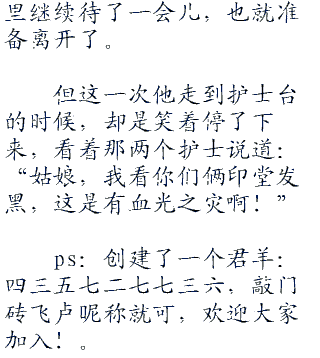 里继续待了一会儿，也就准
备离开了。
但这一次他走到护士台
的时候，却是笑着停了下
来，看着那两个护士说道：
“姑娘，我看你们俩印堂发
黑，这是有血光之灾啊！”
ps：创建了一个君羊：
四三五七二七七三六，敲门
砖飞卢昵称就可，欢迎大家
加入！。